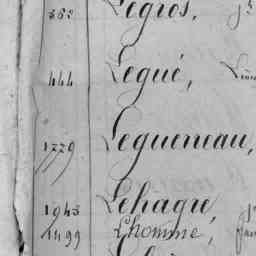 362 Legros,
444 Legué,
1229 Legueneau,
1943 Lehagre,
1499 Lhomme,